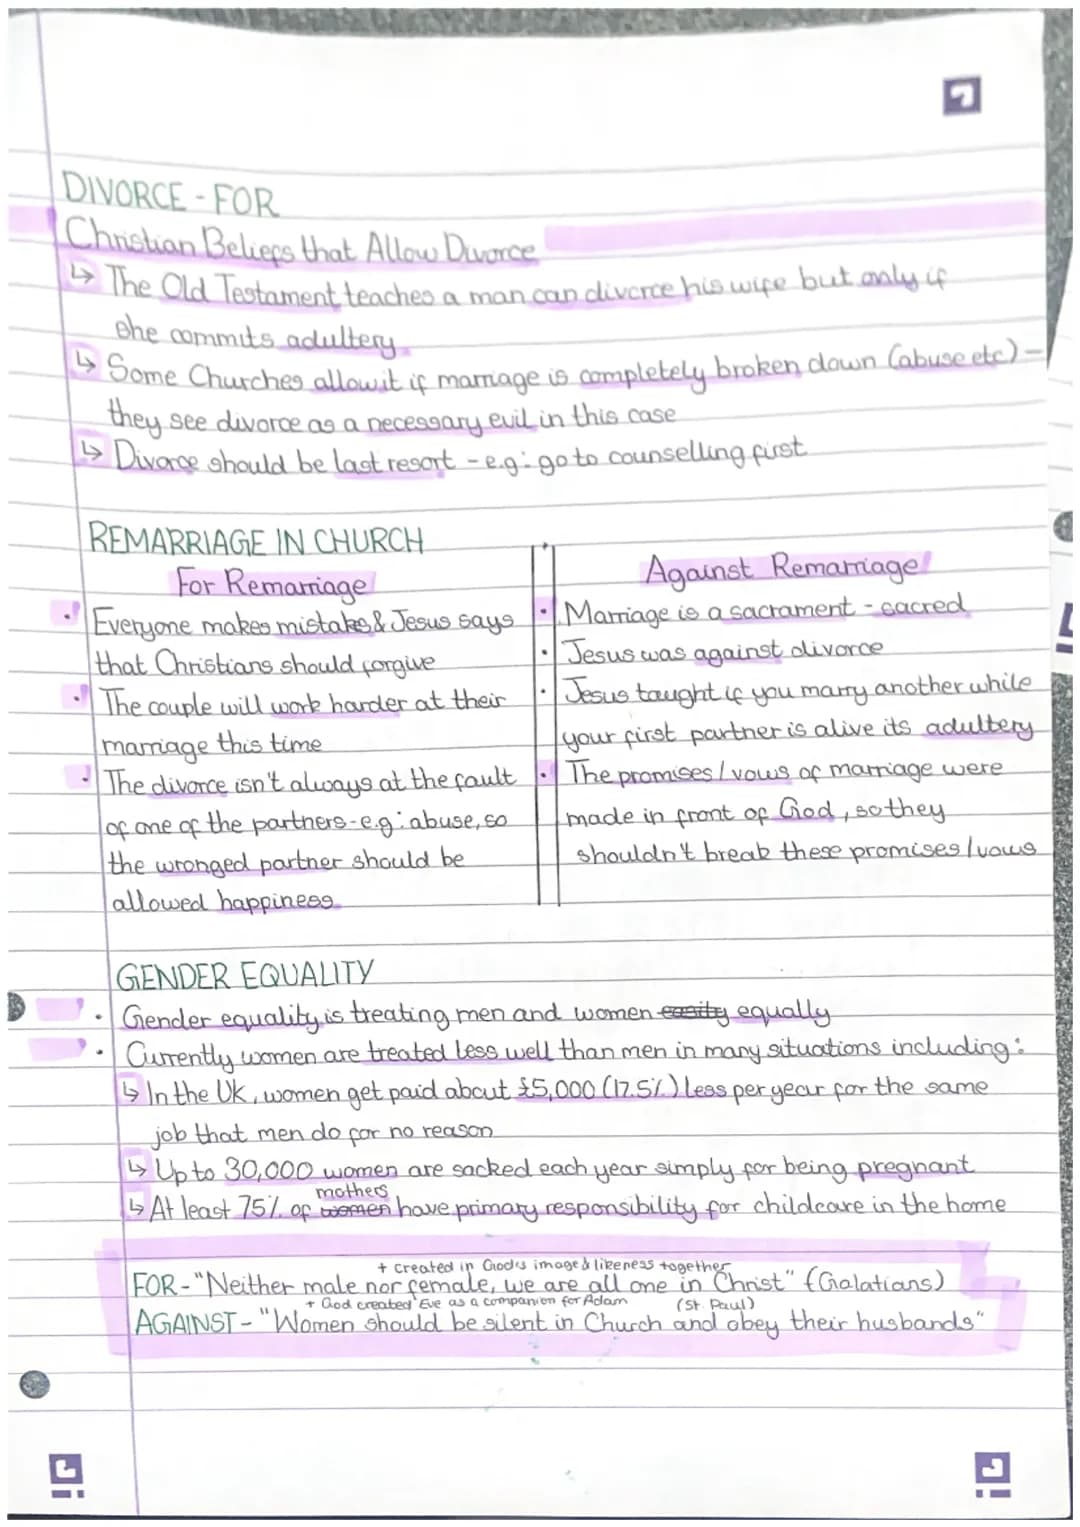 DIVORCE - FOR
Christian Beliefs that Allow Divorce
↳ The Old Testament teaches a man can divorce his wife but only if
she commits adultery.
↳ Some Churches allow it if marriage is completely broken down (abuse etc) -
they see divorce as a necessary evil in this case
↳ Divorce should be last resort - e.g: go to counselling first
REMARRIAGE IN CHURCH
For Remarriage
• Everyone makes mistakes & Jesus says
that Christians should forgive
• The couple will work harder at their
marriage this time
• The divorce isn't always at the fault
of one of the partners - e.g: abuse, so
the wronged partner should be
allowed happiness
Against Remarriage
• Marriage is a sacrament - sacred
• Jesus was against divorce
• Jesus taught if you marry another while
your first partner is alive its adultery
• The promises / vows of marriage were
made in front of God, so they
shouldn't break these promises / vows
GENDER EQUALITY
• Gender equality is treating men and women equally
• Currently women are treated less well than men in many situations including:
↳ In the UK, women get paid about £5,000 (17.5%) less per year for the same
job that men do for no reason
↳ Up to 30,000 women are sacked each year simply for being pregnant
mothers
↳ At least 75% of women have primary responsibility for childcare in the home
+ created in God's image & likeness together
FOR - "Neither male nor female, we are all one in Christ" (Galatians)
+ God created Eve as a companion for Adam (St Paul)
AGAINST - "Women should be silent in Church and obey their husbands"